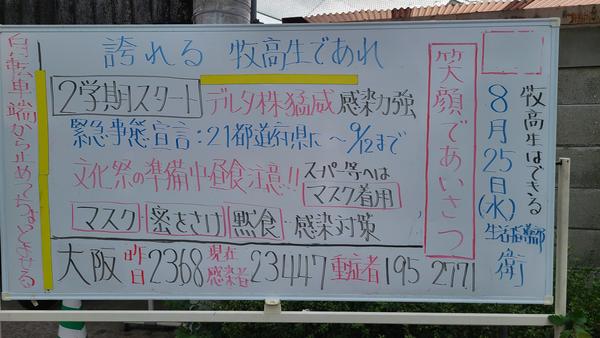 誇れる 牧高生であれ
2学期スタート デルタ株猛威 感染力強
緊急事態宣言:21都道府県に〜9/12まで
文化祭の準備中昼食注意!! スーパー等へは
マスク着用
マスク 密をさけ 黙食 感染対策
大阪 昨日 2368 現在感染者 23447 重症者 195 2771
笑顔であいさつ
牧高生はできる
8月25日(水)
生活指導部
衛
自転車端から止めて